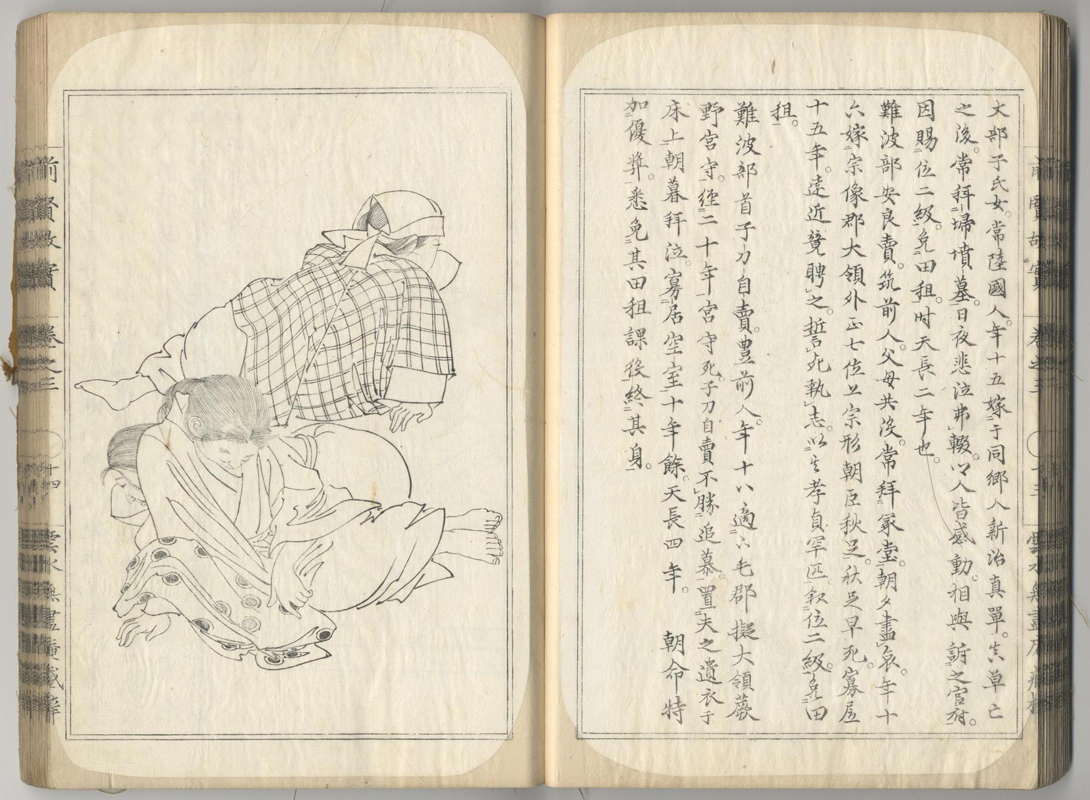 丈部子氏女。常陸國人。年十五嫁于同鄉人新治真單。真單亡
之後。常拜掃墳墓。日夜悲泣弗輟。以人皆感動。相與訴之官府。
因賜位二級。免田租。時天長二年也。
難波部安良賣。筑前人。父母共沒。常拜冢堂。朝夕盡哀。年十
六。嫁宗像郡大領外正七位上宗形朝臣秋足。秋足早死。寡居
十五年。遠近競聘之。誓死執志。以其孝貞罕匹。叙位二級。免田
租。
難波部首子刀自賣。豊前人。年十八。適上毛郡擬大領蕨
野宮守。經二十年。宮守死。子刀自賣不勝追慕。置夫之遺衣于
床上。朝暮拜泣。寡居空室。十年餘。天長四年。朝命特
加優奬。悉免其田租課役。終其身。
前賢故實 卷之三 十三 雲水無盡庵
前賢故實 卷之三 十四 雲水無盡庵藏梓